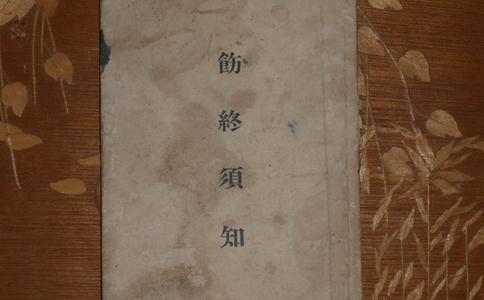 飭終須知